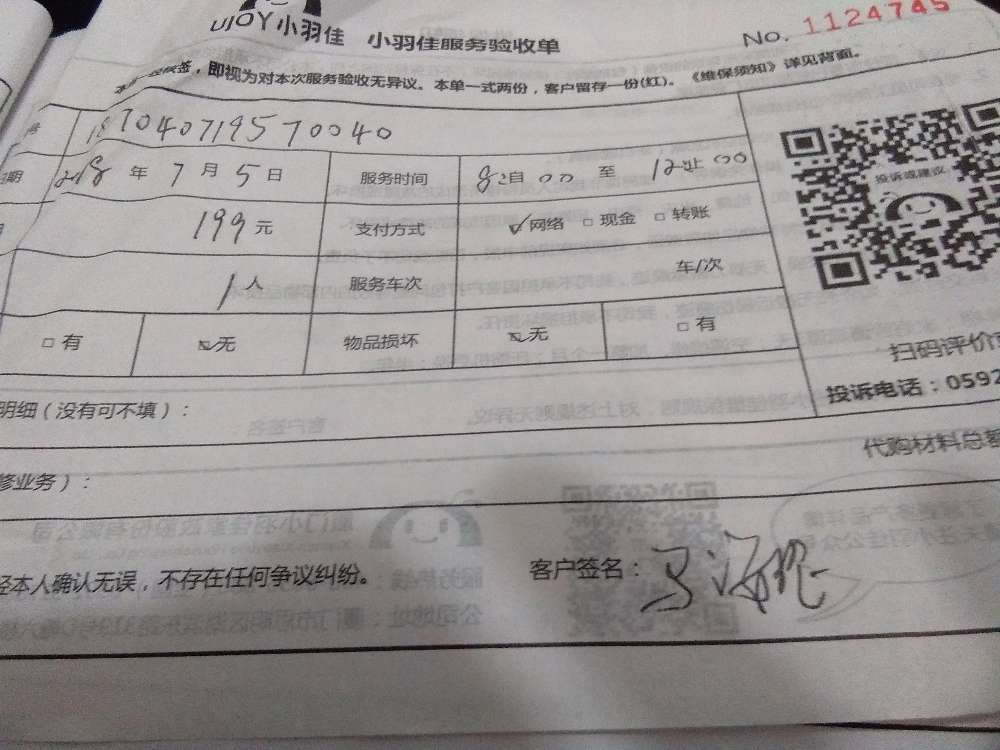 UJOY小羽佳 小羽佳服务验收单 No. 1124745
签,即视为对本次服务验收无异议。本单一式两份,客户留存一份(红)。《维保须知》详见背面。
18704071957 0040
期 2018 年 7 月 5 日 服务时间 8:自 00 至 12止 00
投诉或建议
199 元 支付方式 ☑网络 □ 现金 □ 转账
1 人 服务车次 车/次
□ 有 ☑无 物品损坏 ☑无 □ 有
扫码评价
明细(没有可不填): 投诉电话:0592
代购材料总
修业务):
经本人确认无误,不存在任何争议纠纷。 客户签名: